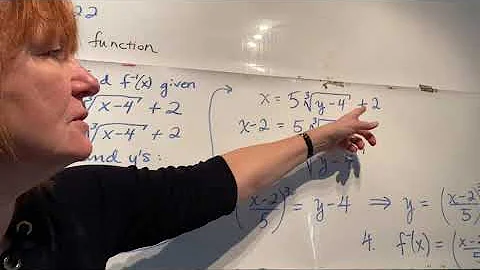 22
function
d f⁻¹(x) given
∛x-4 + 2
∛x-4 + 2
and y's:
x = 5∛y-4 + 2
x-2 = 5∛
∛y-4
(x-2/5)³ = y-4 ⇒ y = (x-2/5)
4. f⁻¹(x) = (x-2